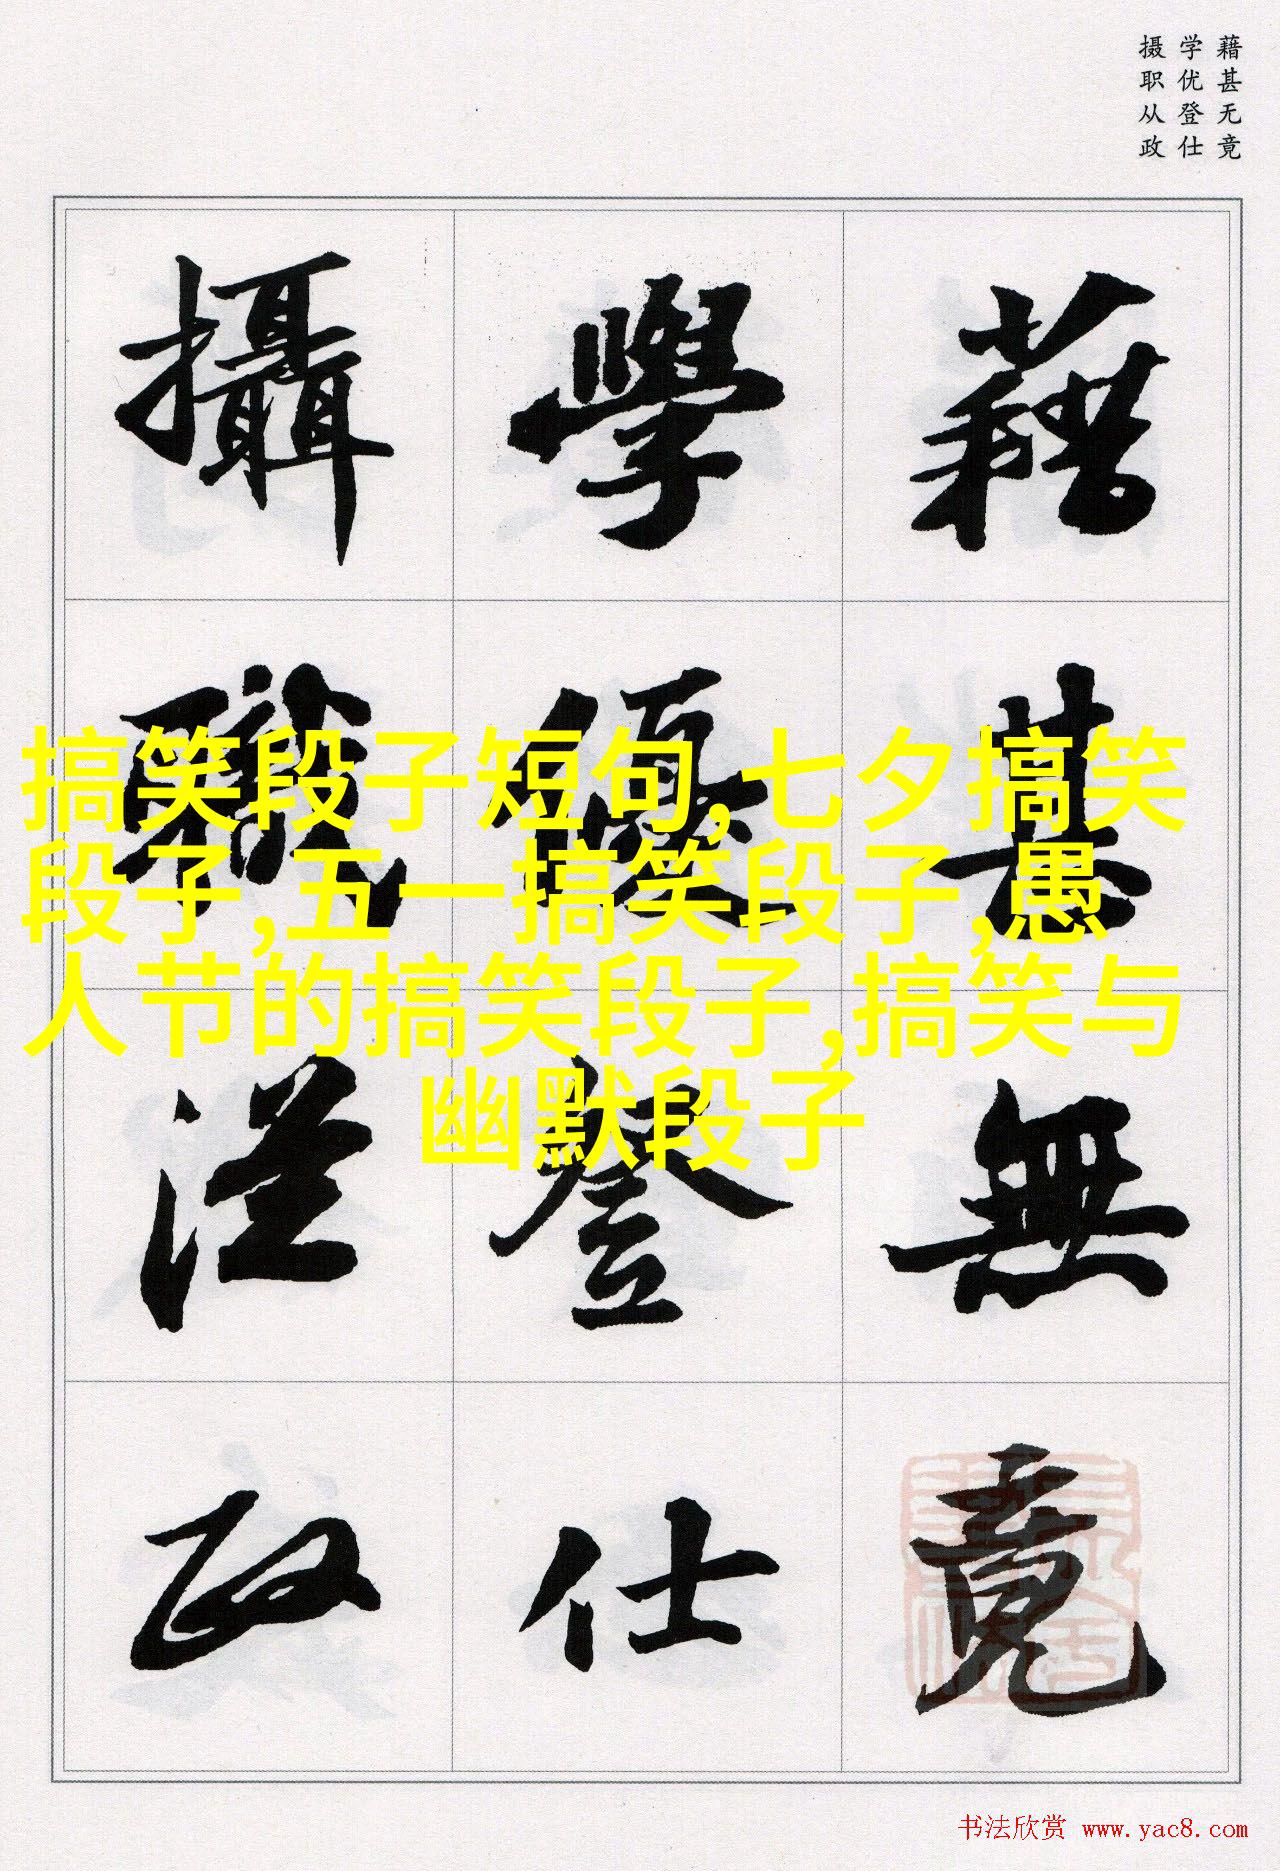 藉甚无竟
学优登仕
摄职从政
藉甚無竟
學優登仕
攝職從政
搞笑段子短句,七夕搞笑
段子,五一搞笑段子,愚
人节的搞笑段子,搞笑与
幽默段子
书法欣赏 www.yac8.com